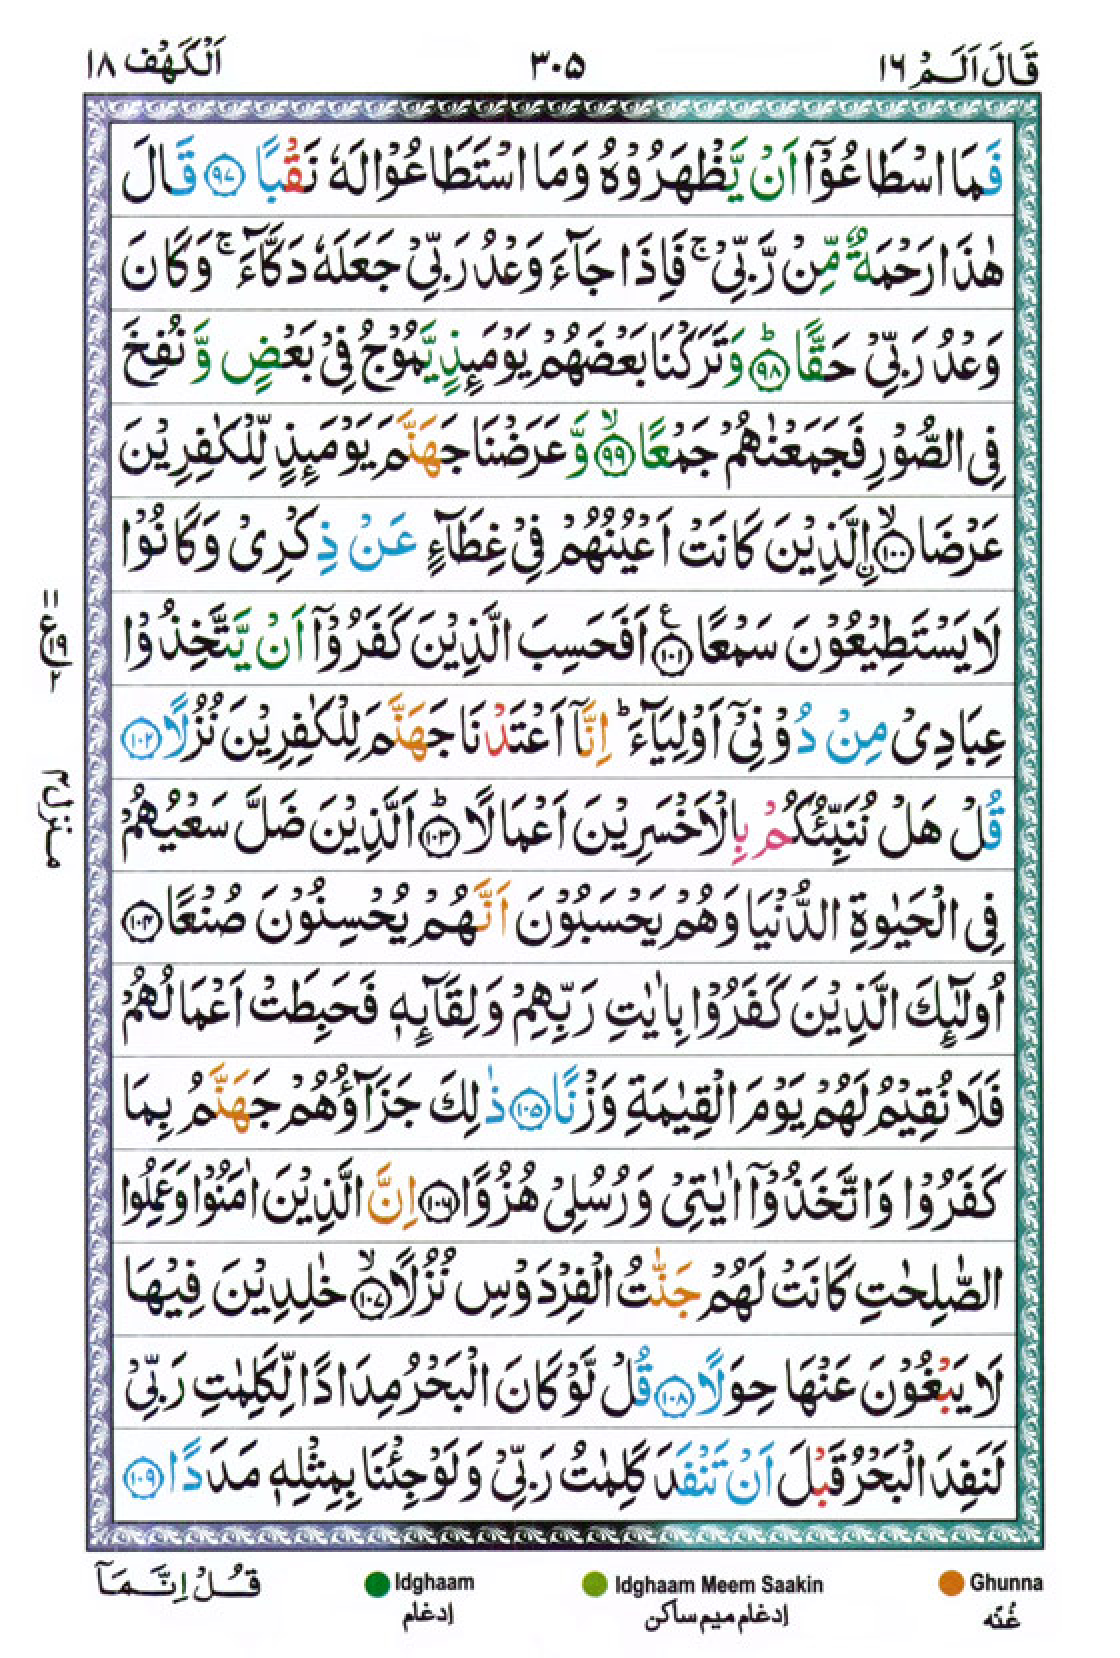 قَالَ اَلَمْ ١٦
٣٠٥
اَلْكَهْف ١٨
فَمَا اسْطَاعُوْۤا اَنْ يَّظْهَرُوْهُ وَمَا اسْتَطَاعُوْا لَهٗ نَقْبًا ﴿٩٧﴾ قَالَ
هٰذَا رَحْمَةٌ مِّنْ رَّبِّىْ ۚ فَاِذَا جَآءَ وَعْدُ رَبِّىْ جَعَلَهٗ دَكَّآءَ ۚ وَكَانَ
وَعْدُ رَبِّىْ حَقًّا ؕ﴿٩٨﴾ وَتَرَكْنَا بَعْضَهُمْ يَوْمَئِذٍ يَّمُوْجُ فِىْ بَعْضٍ وَّ نُفِخَ
فِى الصُّوْرِ فَجَمَعْنٰهُمْ جَمْعًا ۙ﴿٩٩﴾ وَّ عَرَضْنَا جَهَنَّمَ يَوْمَئِذٍ لِّلْكٰفِرِيْنَ
عَرْضَا ۙ﴿١٠٠﴾ اِۨلَّذِيْنَ كَانَتْ اَعْيُنُهُمْ فِىْ غِطَآءٍ عَنْ ذِكْرِىْ وَكَانُوْا
لَا يَسْتَطِيْعُوْنَ سَمْعًا ﴿١٠١﴾ اَفَحَسِبَ الَّذِيْنَ كَفَرُوْۤا اَنْ يَّتَّخِذُوْا
عِبَادِىْ مِنْ دُوْنِىْۤ اَوْلِيَآءَ ؕ اِنَّاۤ اَعْتَدْنَا جَهَنَّمَ لِلْكٰفِرِيْنَ نُزُلًا ﴿١٠٢﴾
قُلْ هَلْ نُنَبِّئُكُمْ بِالْاَخْسَرِيْنَ اَعْمَالًا ؕ﴿١٠٣﴾ اَلَّذِيْنَ ضَلَّ سَعْيُهُمْ
فِى الْحَيٰوةِ الدُّنْيَا وَهُمْ يَحْسَبُوْنَ اَنَّهُمْ يُحْسِنُوْنَ صُنْعًا ﴿١٠٤﴾
اُولٰٓئِكَ الَّذِيْنَ كَفَرُوْا بِاٰيٰتِ رَبِّهِمْ وَلِقَآئِهٖ فَحَبِطَتْ اَعْمَالُهُمْ
فَلَا نُقِيْمُ لَهُمْ يَوْمَ الْقِيٰمَةِ وَزْنًا ﴿١٠٥﴾ ذٰلِكَ جَزَآؤُهُمْ جَهَنَّمُ بِمَا
كَفَرُوْا وَاتَّخَذُوْۤا اٰيٰتِىْ وَرُسُلِىْ هُزُوًا ﴿١٠٦﴾ اِنَّ الَّذِيْنَ اٰمَنُوْا وَعَمِلُوا
الصّٰلِحٰتِ كَانَتْ لَهُمْ جَنّٰتُ الْفِرْدَوْسِ نُزُلًا ۙ﴿١٠٧﴾ خٰلِدِيْنَ فِيْهَا
لَا يَبْغُوْنَ عَنْهَا حِوَلًا ﴿١٠٨﴾ قُلْ لَّوْ كَانَ الْبَحْرُ مِدَادًا لِّكَلِمٰتِ رَبِّىْ
لَنَفِدَ الْبَحْرُ قَبْلَ اَنْ تَنْفَدَ كَلِمٰتُ رَبِّىْ وَلَوْ جِئْنَا بِمِثْلِهٖ مَدَدًا ﴿١٠٩﴾
١١
ع
١٩
٢
منزل ٤
قُلْ اِنَّمَآ
Idghaam
إدغام
Idghaam Meem Saakin
إدغام ميم ساكن
Ghunna
غُنّه